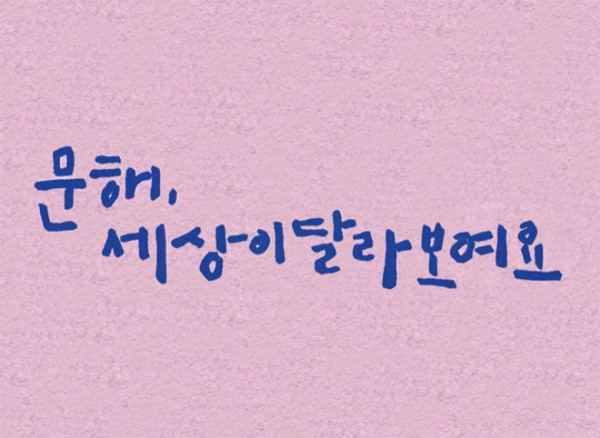 문해,
세상이달라보여요